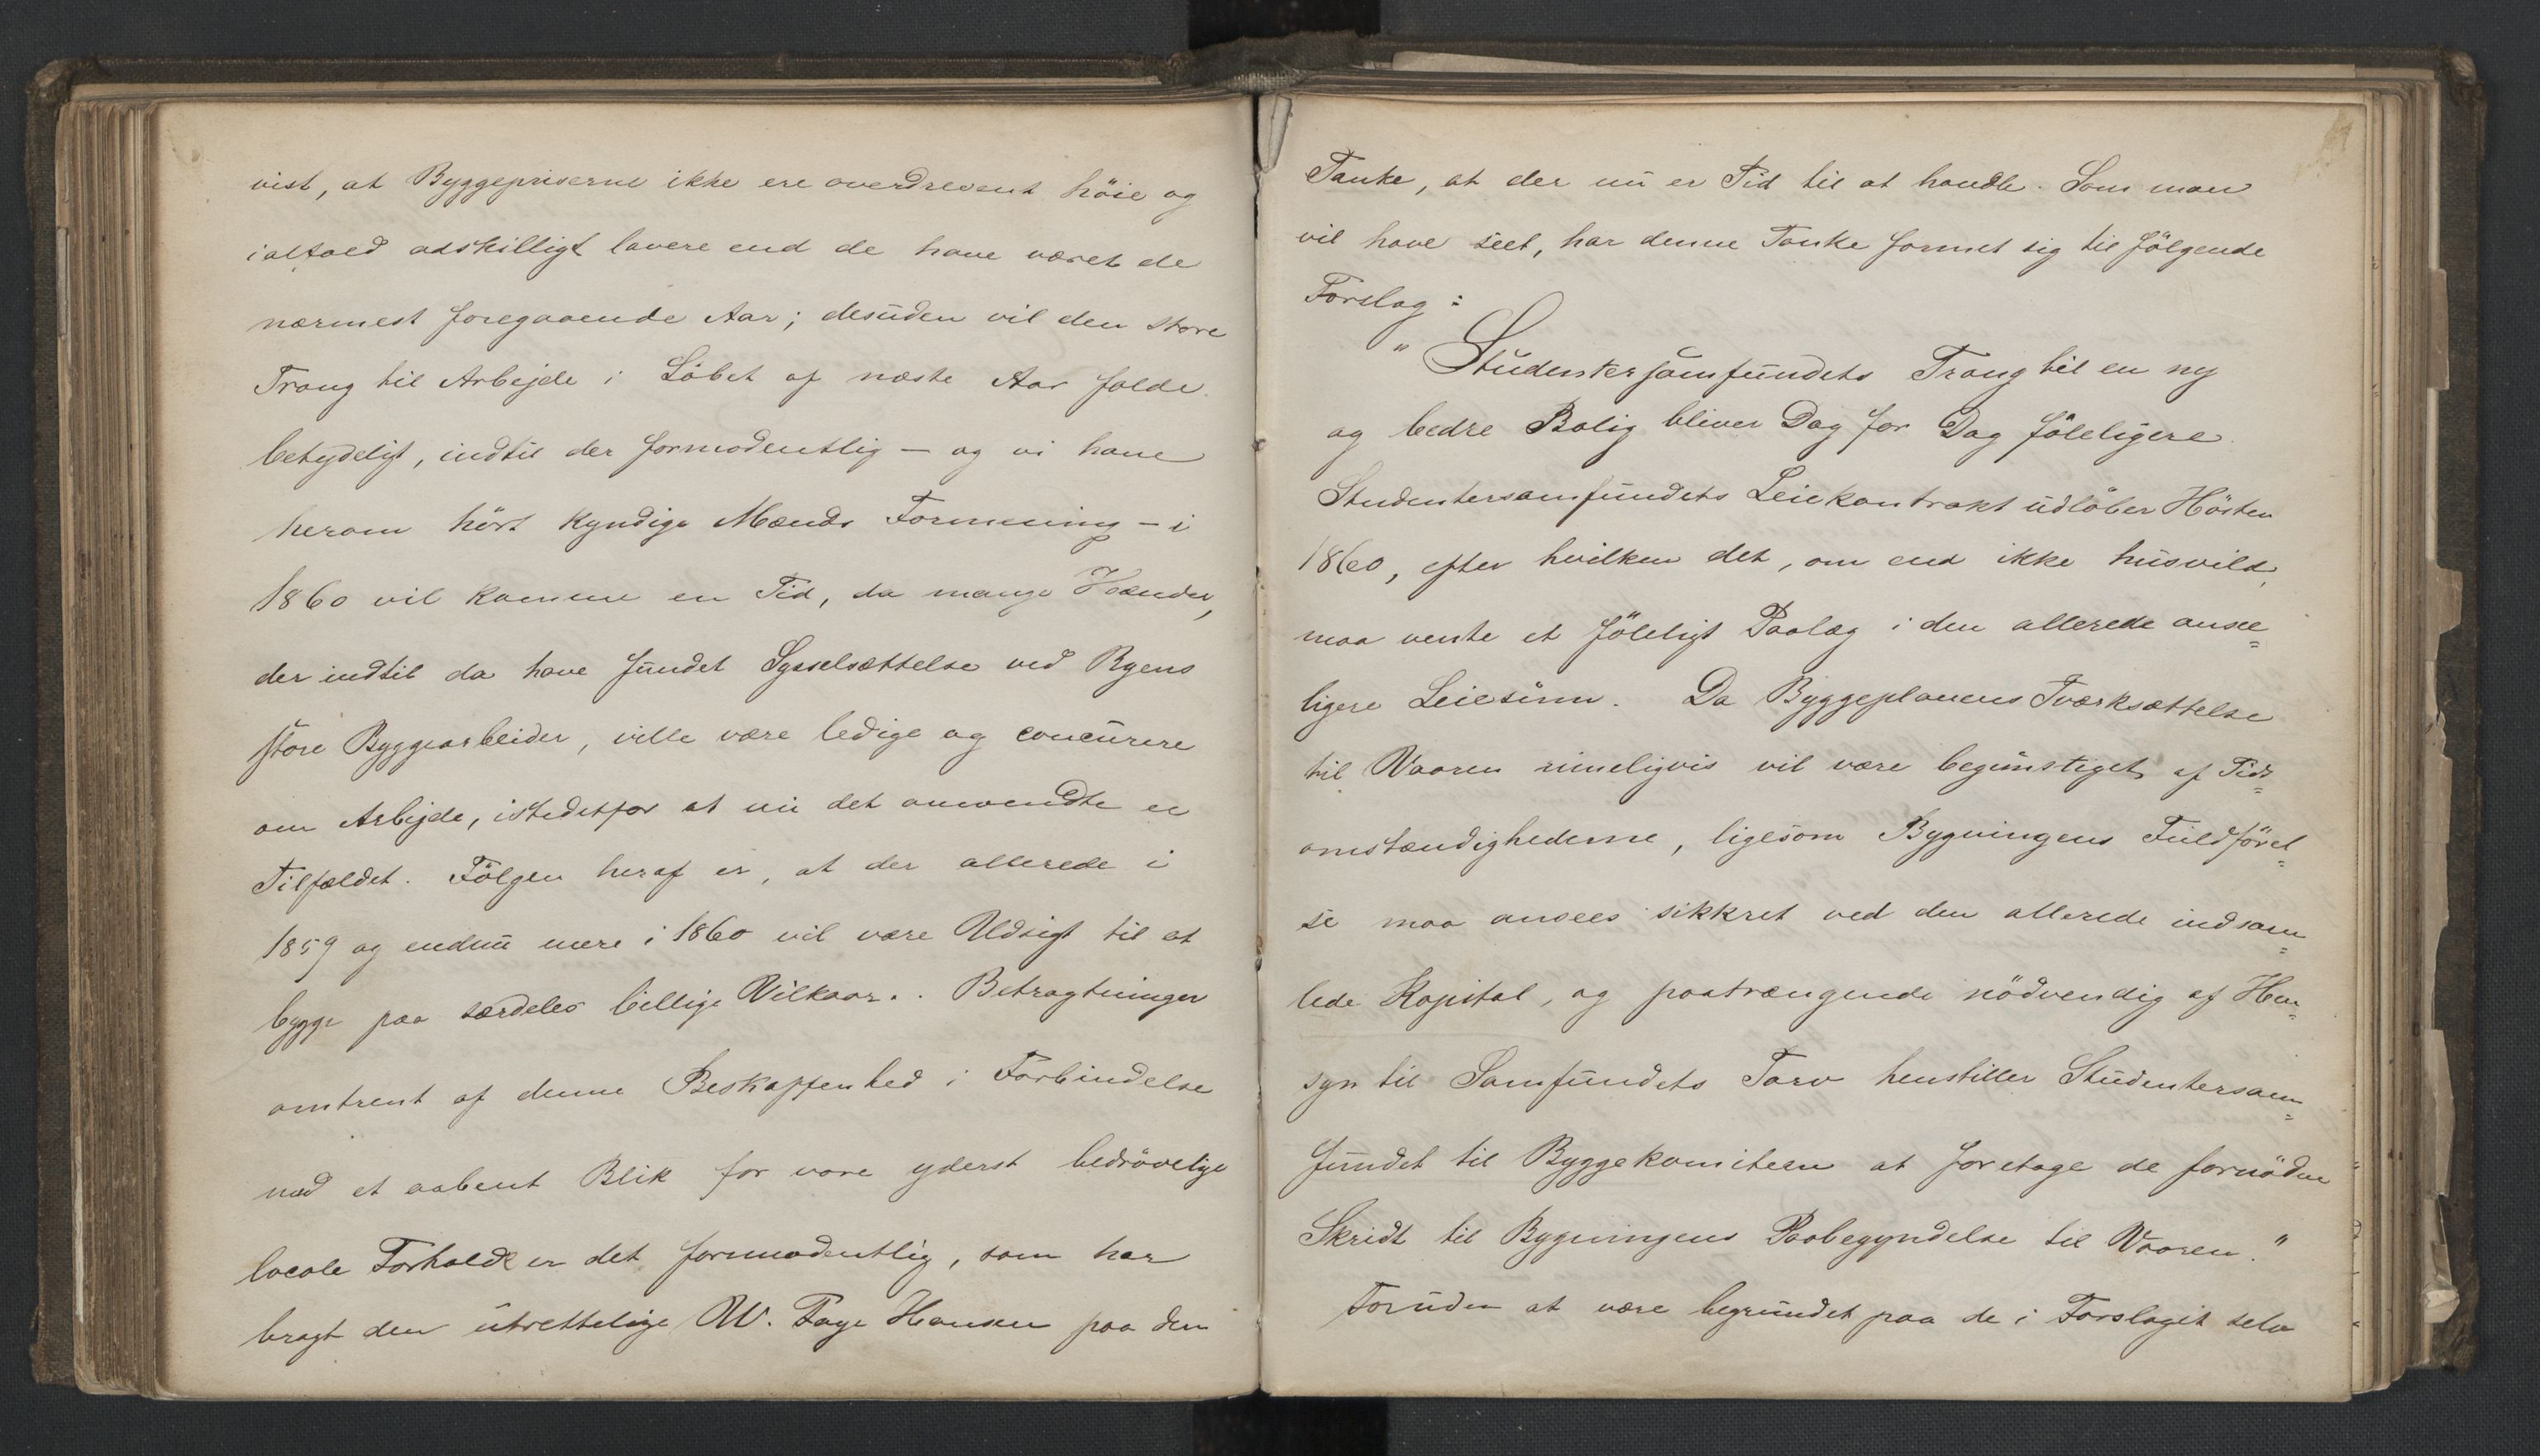 vist, at Byggepriserne ikke ere overdrevent höie og
ialfald adskilligt lavere end de have været de
nærmest foregaaende Aar; desuden vil den store
Trang til Arbejde i Löbet af næste Aar falde
betydeligt, indtil der formodentlig – og vi have
herom hört kyndige Mænds Formening – i
1860 vil komme en Tid, da mange Hænder,
der indtil da have fundet Sysselsættelse ved Byens
store Byggearbeider, ville være ledige og concurere
om Arbejde, istedetfor at nu det omvendte er
Tilfældet. Fölgen heraf er, at der allerede i
1859 og endnu mere i 1860 vil være Udsigt til at
bygge paa særdeles billige Vilkaar. Betragtninger
omtrent af denne Beskaffenhed i Forbindelse
med et aabent Blik for vore yderst bedrövelige
locale Forhold er det formodentlig, som har
bragt den utrettelige W. Faye Hansen paa den
Tanke, at der nu er Tid til at handle. Som man
vil have seet, har denne Tanke formet sig til fölgende
Forslag:
"Studentersamfundets Trang til en ny
og bedre Bolig bliver Dag for Dag föleligere.
Studentersamfundets Leiekontrakt udlöber Hösten
1860, efter hvilken det, om end ikke husvild,
maa vente et föleligt Paalæg i den allerede ansee=
ligere Leiesum. Da Byggeplanens Iværksættelse
til Vaaren rimeligvis vil være begunstiget af Tids=
omstændighederne, ligesom Bygningens Fuldförel=
se maa ansees sikkret ved den allerede indsam=
lede Kapital, og paatrængende nödvendig af Hen=
syn til Samfundets Tarv henstiller Studentersam=
fundet til Byggekomiteen at foretage de fornödne
Skridt til Bygningens Paabegyndelse til Vaaren."
Foruden at være begrundet paa de i Forslaget selv